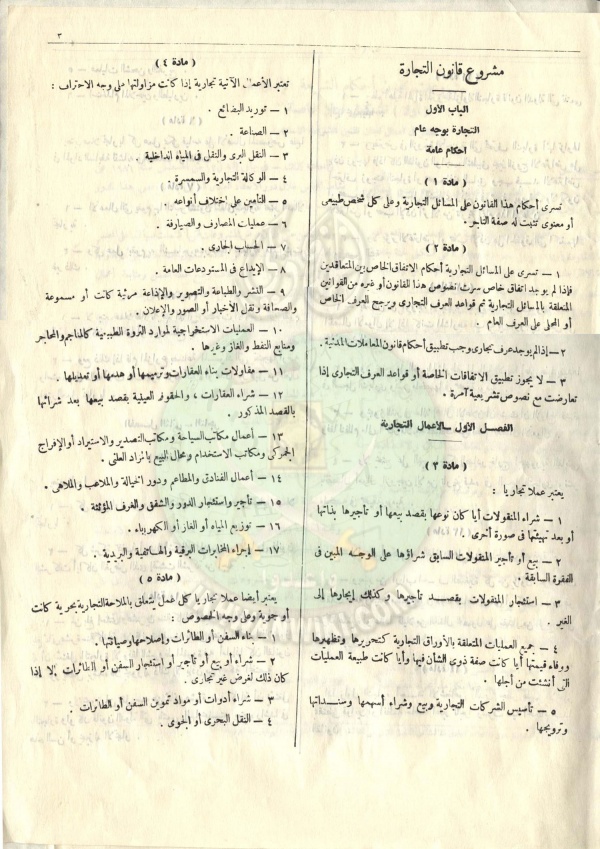 ٣
مشروع قانون التجارة
الباب الأول
التجارة بوجه عام
أحكام عامة
( مادة ١ )
تسرى أحكام هذا القانون على المسائل التجارية وعلى كل شخص طبيعى
أو معنوى تثبت له صفة التاجر .
( مادة ٢ )
١ – تسرى على المسائل التجارية أحكام الاتفاق الخاص بين المتعاقدين
فإذا لم يوجد اتفاق خاص سرت نصوص هذا القانون أو غيره من القوانين
المتعلقة بالمسائل التجارية ثم قواعد العرف التجارى ويرجح العرف الخاص
أو المحلى على العرف العام .
٢ – إذا لم يوجد عرف تجارى وجب تطبيق أحكام قانون المعاملات المدنية .
٣ – لا يجوز تطبيق الاتفاقات الخاصة أو قواعد العرف التجارى إذا
تعارضت مع نصوص تشريعية آمرة .
الفصل الأول – الأعمال التجارية
( مادة ٣ )
يعتبر عملا تجاريا :
١ – شراء المنقولات أيا كان نوعها بقصد بيعها أو تأجيرها بذاتها
أو بعد تهيئتها فى صورة أخرى .
٢ – بيع أو تأجير المنقولات السابق شراؤها على الوجه المبين فى
الفقرة السابقة .
٣ – استئجار المنقولات بقصد تأجيرها وكذلك إيجارها إلى
الغير .
٤ – جميع العمليات المتعلقة بالأوراق التجارية كتحريرها وتظهيرها
ووفاء قيمتها أيا كانت صفة ذوى الشأن فيها وأيا كانت طبيعة العمليات
التى أنشئت من أجلها .
٥ – تأسيس الشركات التجارية وبيع وشراء أسهمها وسنداتها
وترويجها .
( مادة ٤ )
تعتبر الأعمال الآتية تجارية إذا كانت مزاولتها على وجه الاحتراف :
١ – توريد البضائع .
٢ – الصناعة .
٣ – النقل البرى والنقل فى المياه الداخلية .
٤ – الوكالة التجارية والسمسرة .
٥ – التأمين على اختلاف أنواعه .
٦ – عمليات المصارف والصيارفة .
٧ – الحساب الجارى .
٨ – الإيداع فى المستودعات العامة .
٩ – النشر والطباعة والتصوير والإذاعة مرئية كانت أو مسموعة
والصحافة ونقل الأخبار أو الصور والإعلان .
١٠ – العمليات الاستخراجية لموارد الثروة الطبيعية كالمناجم والمحاجر
ومنابع النفط والغاز وغيرها .
١١ – مقاولات بناء العقارات وترميمها أو هدمها أو تعديلها .
١٢ – شراء العقارات ، والحقوق العينية بقصد بيعها بعد شرائها
بالقصد المذكور .
١٣ – أعمال مكاتب السياحة ومكاتب التصدير والاستيراد أو الإفراج
الجمركى ومكاتب الاستخدام ومحال البيع بالمزاد العلنى .
١٤ – أعمال الفنادق والمطاعم ودور الخيالة والملاعب والملاهى .
١٥ – تأجير واستئجار الدور والشقق والغرف المؤثثة .
١٦ – توزيع المياه أو الغاز أو الكهرباء .
١٧ – إجراء المخابرات البرقية والهاتفية والبريدية .
( مادة ٥ )
يعتبر أيضا عملا تجاريا كل عمل يتعلق بالملاحة التجارية بحرية كانت
أو جوية وعلى وجه الخصوص :
١ – بناء السفن أو الطائرات وإصلاحها وصيانتها .
٢ – شراء أو بيع أو تأجير أو استئجار السفن أو الطائرات إلا إذا
كان ذلك لغرض غير تجارى .
٣ – شراء أدوات أو مواد تموين السفن أو الطائرات .
٤ – النقل البحرى أو الجوى .